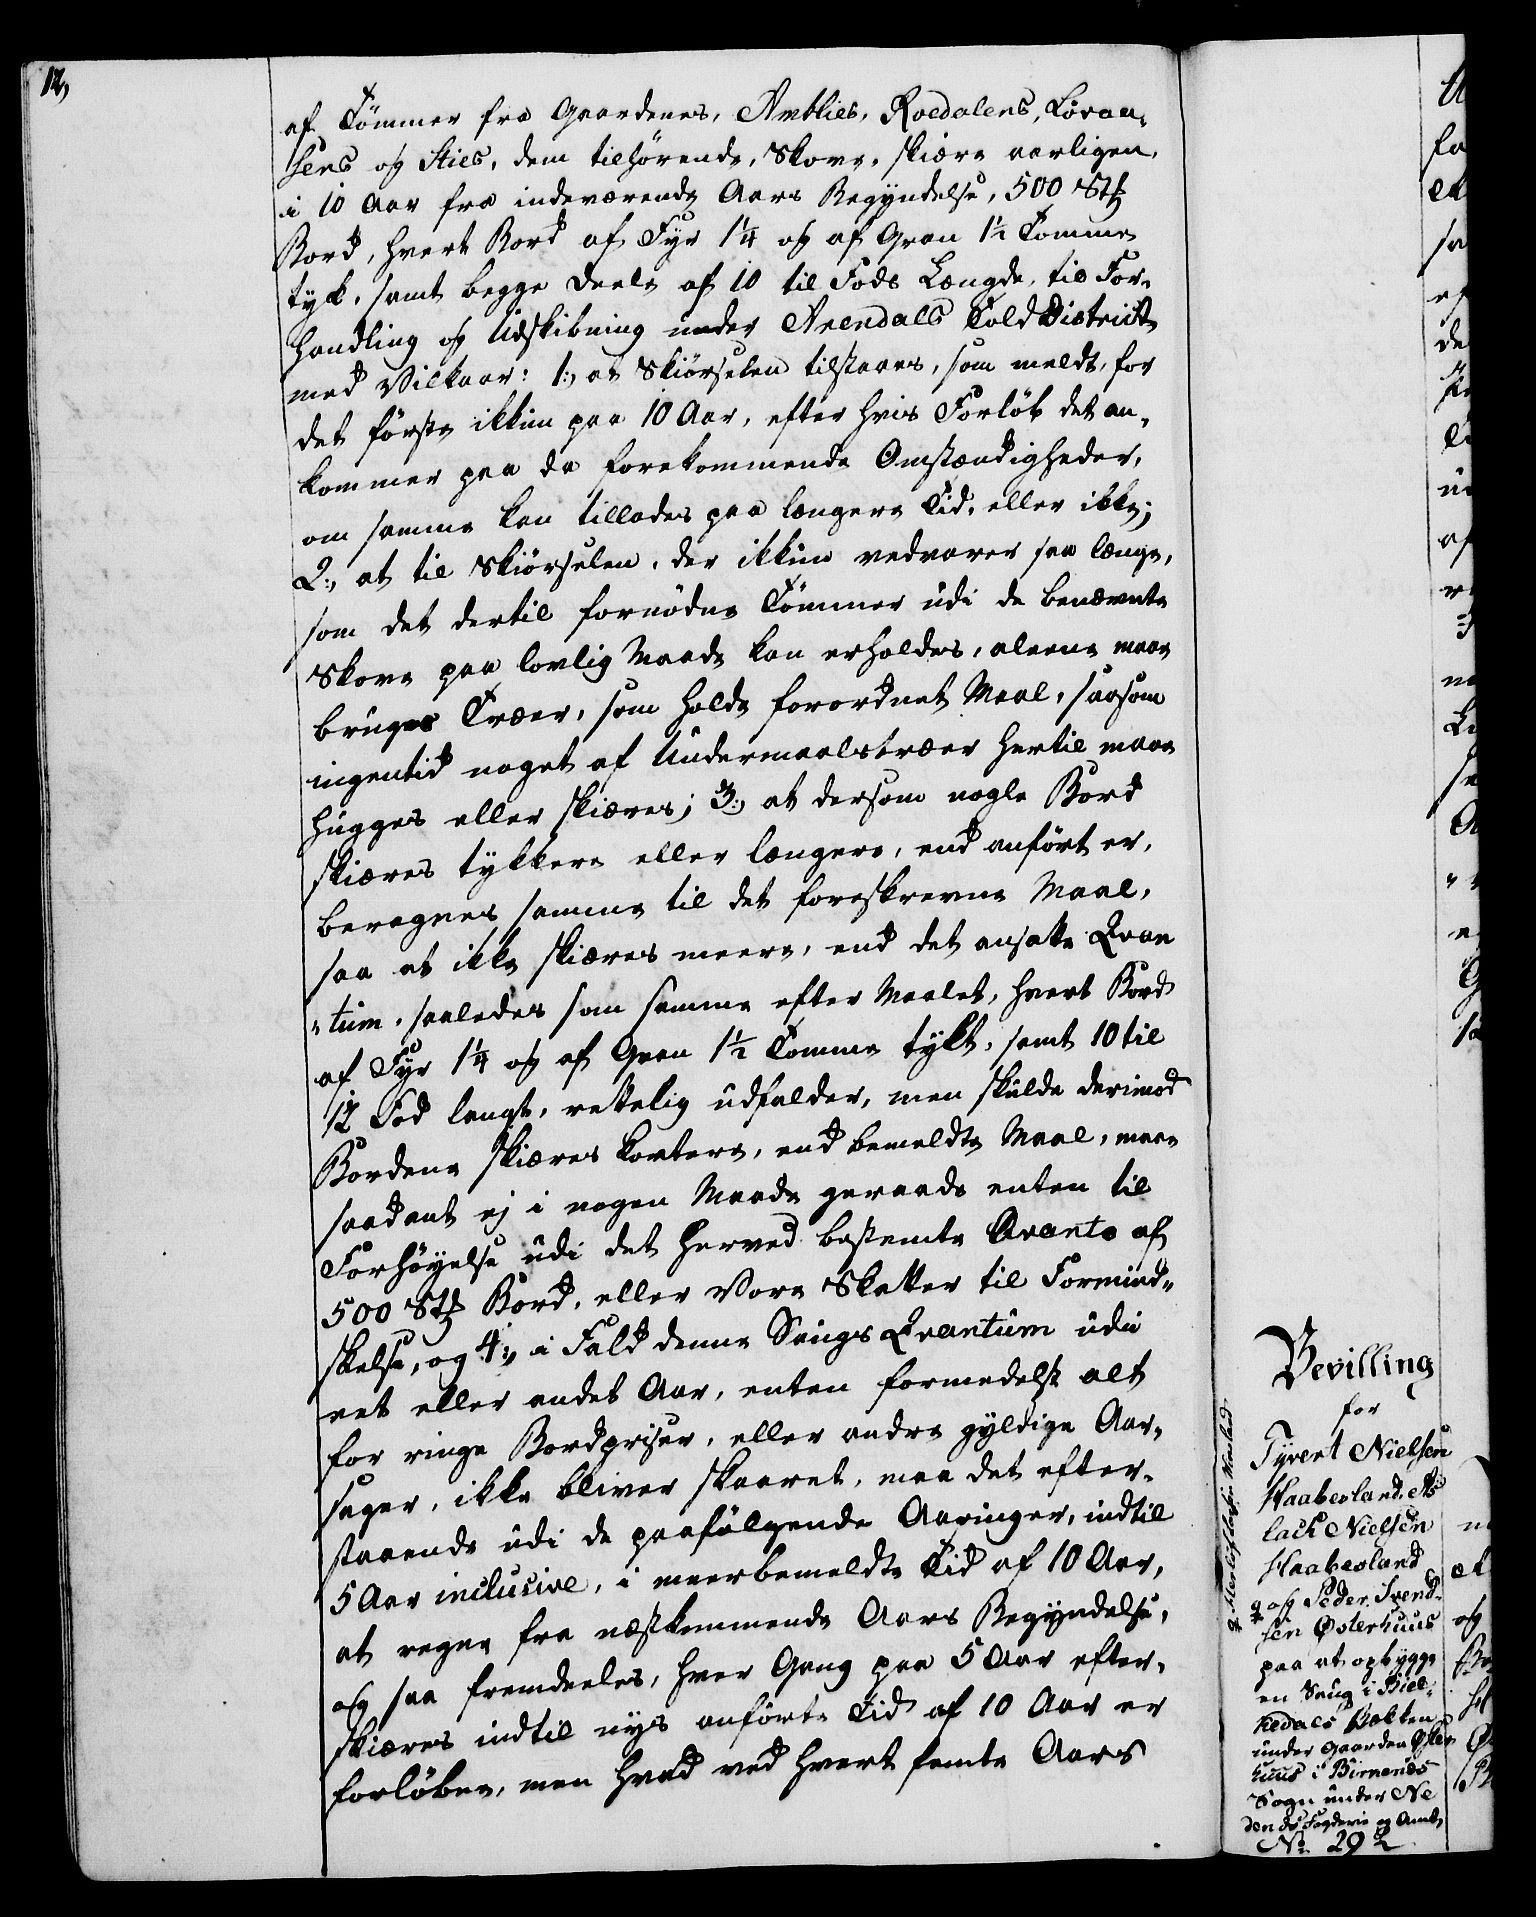 12,
af Tömmer fra Gaardenes, Amblies, Roedalens, Løvaa„
sens og Sties, dem tilhørende, Skove, skiære aarligen,
i 10 Aar fra indeværende Aars Begyndelse, 500 Stk
Bord, hvert Bord af Fyr 1¼ og af Gran 1½ Tomme
tyck, samt begge Deele af 10 til Fods Længde, til For„
handling og Udskibning under Arendalls Told District
med Vilkaar: 1:, at Skiörselen tilstaaes, som meldt, for
det förste ikkun paa 10 Aar, efter hvis Forløb det an„
kommer paa de forekommende Omstændigheder,
om samme kan tillades paa længere Tid, eller ikke;
2:, at til Skiörselen, der ikkun vedvarer saa længe,
som det dertil fornødne Tömmer udi de benævnte
Skove paa lovlig Maade kan erholdes, aleene maae
bruges Træer, som holde forordnet Maal, saasom
ingentid noget af Undermaalstræer hertil maae
hugges eller skiæres; 3:, at dersom nogle Bord
skiæres tykkere eller længere, end anført er,
beregnes samme til det foreskrevne Maal,
saa at ikke skiæres meere, end det ansatte Qvan
„tum, saaledes som samme efter Maalet, hvert Bord
af Fyr 1¼ og af Gran 1½ Tomme tykt, samt 10 til
12 Fod langt, rettelig udfalder, men skulde derimod
Bordene skiæres kortere, end bemeldte Maal, maae
saadant ej i nogen Maade geraade enten til
Forhøyelse udi det herved bestemte Qvanto af
500 Stk Bord, eller Vore Skatter til Formind„
skelse, og 4:, i Fald denne Saugs Qvantum udi
eet eller andet Aar, enten formedelst alt
for ringe Bordpriser, eller andre gyldige Aar„
sager, ikke bliver skaaret, maa det efter„
staaende udi de paafølgende Aaringer, indtil
5 Aar inclusive, i meerbemeldte Tid af 10 Aar,
at regne fra næstkommende Aars Begyndelse,
og saa fremdeeles, hver Gang paa 5 Aar efter„
skiæres indtil nys anførte Tid af 10 Aar er
forløben, men hvad ved hvert femte Aars
Bevilling
for
Tyvert Nielsen
Haabesland, As
lack Nielsen
Haabesland
og Peder Svend„
sen Østerhuus
paa at opbygge
en Saug i Biel„
kedals Bækken
under Gaarden Øster
huus i Birnenes
Sogn under Ne
denes Fogderie og Amt,
No 29½